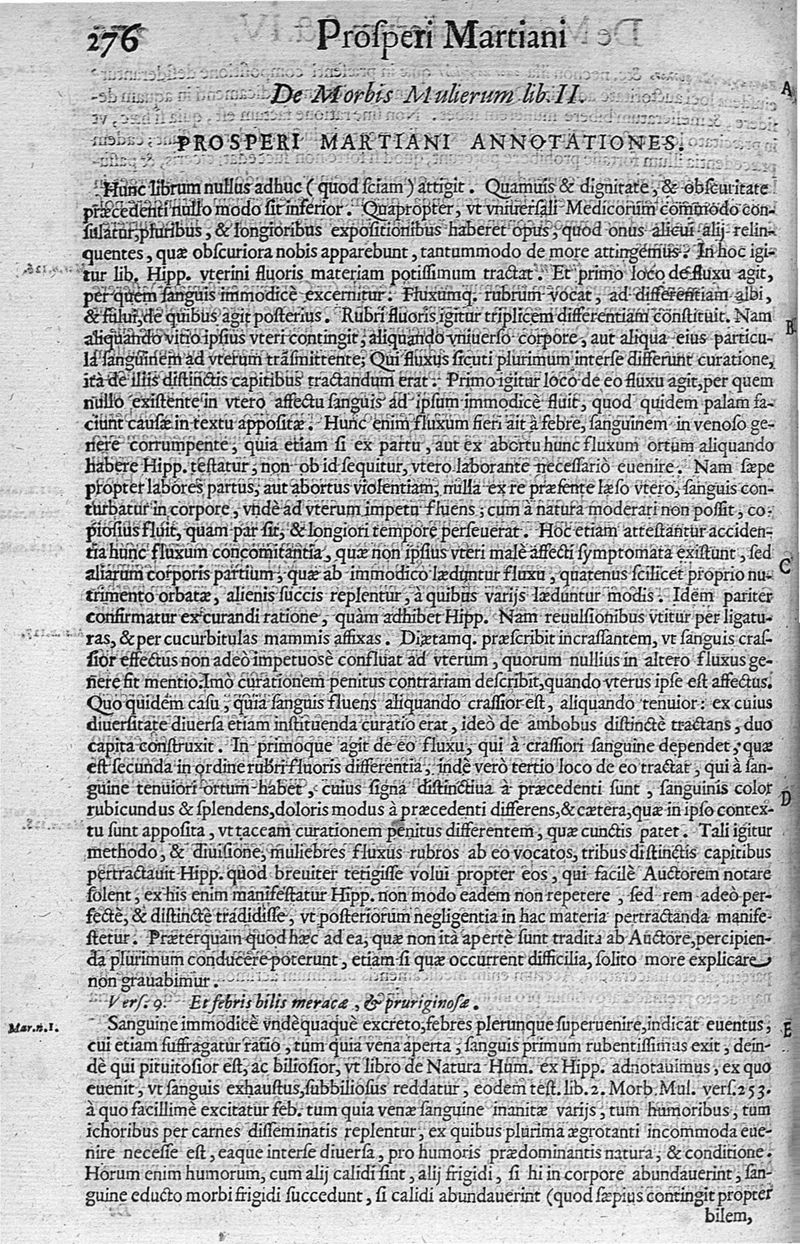 276 Prosperi Martiani
De Morbis Mulierum lib. II.
A
PROSPERI MARTIANI ANNOTATIONES.
Hunc librum nullus adhuc (quod sciam) attigit. Quamuis & dignitate, & obscuritate
præcedenti nullo modo sit inferior. Quapropter, vt vniuersali Medicorum commodo con-
sulatur, pluribus, & longioribus expositionibus haberet opus, quod onus alicui alij relin-
quentes, quæ obscuriora nobis apparebunt, tantummodo de more attingemus. In hoc igi-
tur lib. Hipp. vterini fluoris materiam potissimum tractat. Et primo loco de fluxu agit,
per quem sanguis immodicè excernitur. Fluxumq. rubrum vocat, ad differentiam albi,
& fului, de quibus agit posterius. Rubri fluoris igitur triplicem differentiam constituit. Nam
B
aliquando vitio ipsius vteri contingit, aliquando vniuerso corpore, aut aliqua eius particu-
la sanguinem ad vterum trãsmittente; Qui fluxus sicuti plurimum inter se differunt curatione,
ità de illis distinctis capitibus tractandum erat. Primo igitur loco de eo fluxu agit, per quem
nullo existente in vtero affectu sanguis ad ipsum immodicè fluit, quod quidem palam fa-
ciunt causæ in textu appositæ. Hunc enim fluxum fieri ait à febre, sanguinem in venoso ge-
nere corrumpente, quia etiam si ex partu, aut ex abortu hunc fluxum ortum aliquando
habere Hipp. testatur, non ob id sequitur, vtero laborante necessariò euenire. Nam sæpe
propter labores partus, aut abortus violentiam, nulla ex re præsente læso vtero, sanguis con-
turbatur in corpore, vndè ad vterum impetu fluens; cum à natura moderari non possit, co-
piosius fluit, quam par sit, & longiori tempore perseuerat. Hoc etiam attestantur acciden-
tia hunc fluxum concomitantia, quæ non ipsius vteri malè affecti symptomata existunt, sed
C
aliarum corporis partium, quæ ab immodico læduntur fluxu, quatenus scilicet proprio nu-
trimento orbatæ, alienis succis replentur, à quibus varijs læduntur modis. Idem pariter
confirmatur ex curandi ratione, quàm adhibet Hipp. Nam reuulsionibus vtitur per ligatu-
ras, & per cucurbitulas mammis affixas. Diætamq. præscribit incrassantem, vt sanguis cras-
sior effectus non adeò impetuosè confluat ad vterum, quorum nullius in altero fluxus ge-
nere fit mentio. Imò curationem penitus contrariam describit, quando vterus ipse est affectus.
Quo quidem casu, quia sanguis fluens aliquando crassior est, aliquando tenuior: ex cuius
diuersitate diuersa etiam instituenda curatio erat, ideò de ambobus distinctè tractans, duo
capita construxit. In primoque agit de eo fluxu, qui à crassiori sanguine dependet, quæ
est secunda in ordine rubri fluoris differentia, indè verò tertio loco de eo tractat, qui à san-
guine tenuiori ortum habet, cuius signa distinctiua à præcedenti sunt, sanguinis color
D
rubicundus & splendens, doloris modus à præcedenti differens, & cætera, quæ in ipso contex-
tu sunt apposita, vt taceam curationem penitus differentem, quæ cunctis patet. Tali igitur
methodo, & diuisione, muliebres fluxus rubros ab eo vocatos, tribus distinctis capitibus
pertractauit Hipp. quod breuiter tetigisse volui propter eos, qui facilè Auctorem notare
solent, ex his enim manifestatur Hipp. non modo eadem non repetere, sed rem adeò per-
fectè, & distinctè tradidisse, vt posteriorum negligentia in hac materia pertractanda manife-
stetur. Præterquam quod hæc ad ea, quæ non ità apertè sunt tradita ab Auctore, percipien-
da plurimum conducere poterunt, etiam si quæ occurrent difficilia, solito more explicare
non grauabimur.
Vers. 9. Et febris bilis meracæ, & pruriginosæ.
Mar. n. 1.
Sanguine immodicè vndèquaquè excreto, febres plerunque superuenire, indicat euentus,
E
cui etiam suffragatur ratio, tum quia vena aperta, sanguis primum rubentissimus exit, dein-
dè qui pituitosior est, ac biliosior, vt libro de Natura Hum. ex Hipp. adnotauimus, ex quo
euenit, vt sanguis exhaustus, subbiliosus reddatur, eodem test. lib. 2. Morb. Mul. vers. 253.
à quo facillimè excitatur feb. tum quia venæ sanguine inanitæ varijs, tum humoribus, tum
ichoribus per carnes disseminatis replentur, ex quibus plurima ægrotanti incommoda eue-
nire necesse est, eaque inter se diuersa, pro humoris prædominantis natura, & conditione.
Horum enim humorum, cum alij calidi sint, alij frigidi, si hi in corpore abundauerint, san-
guine educto morbi frigidi succedunt, si calidi abundauerint (quod sæpius contingit propter
bilem,